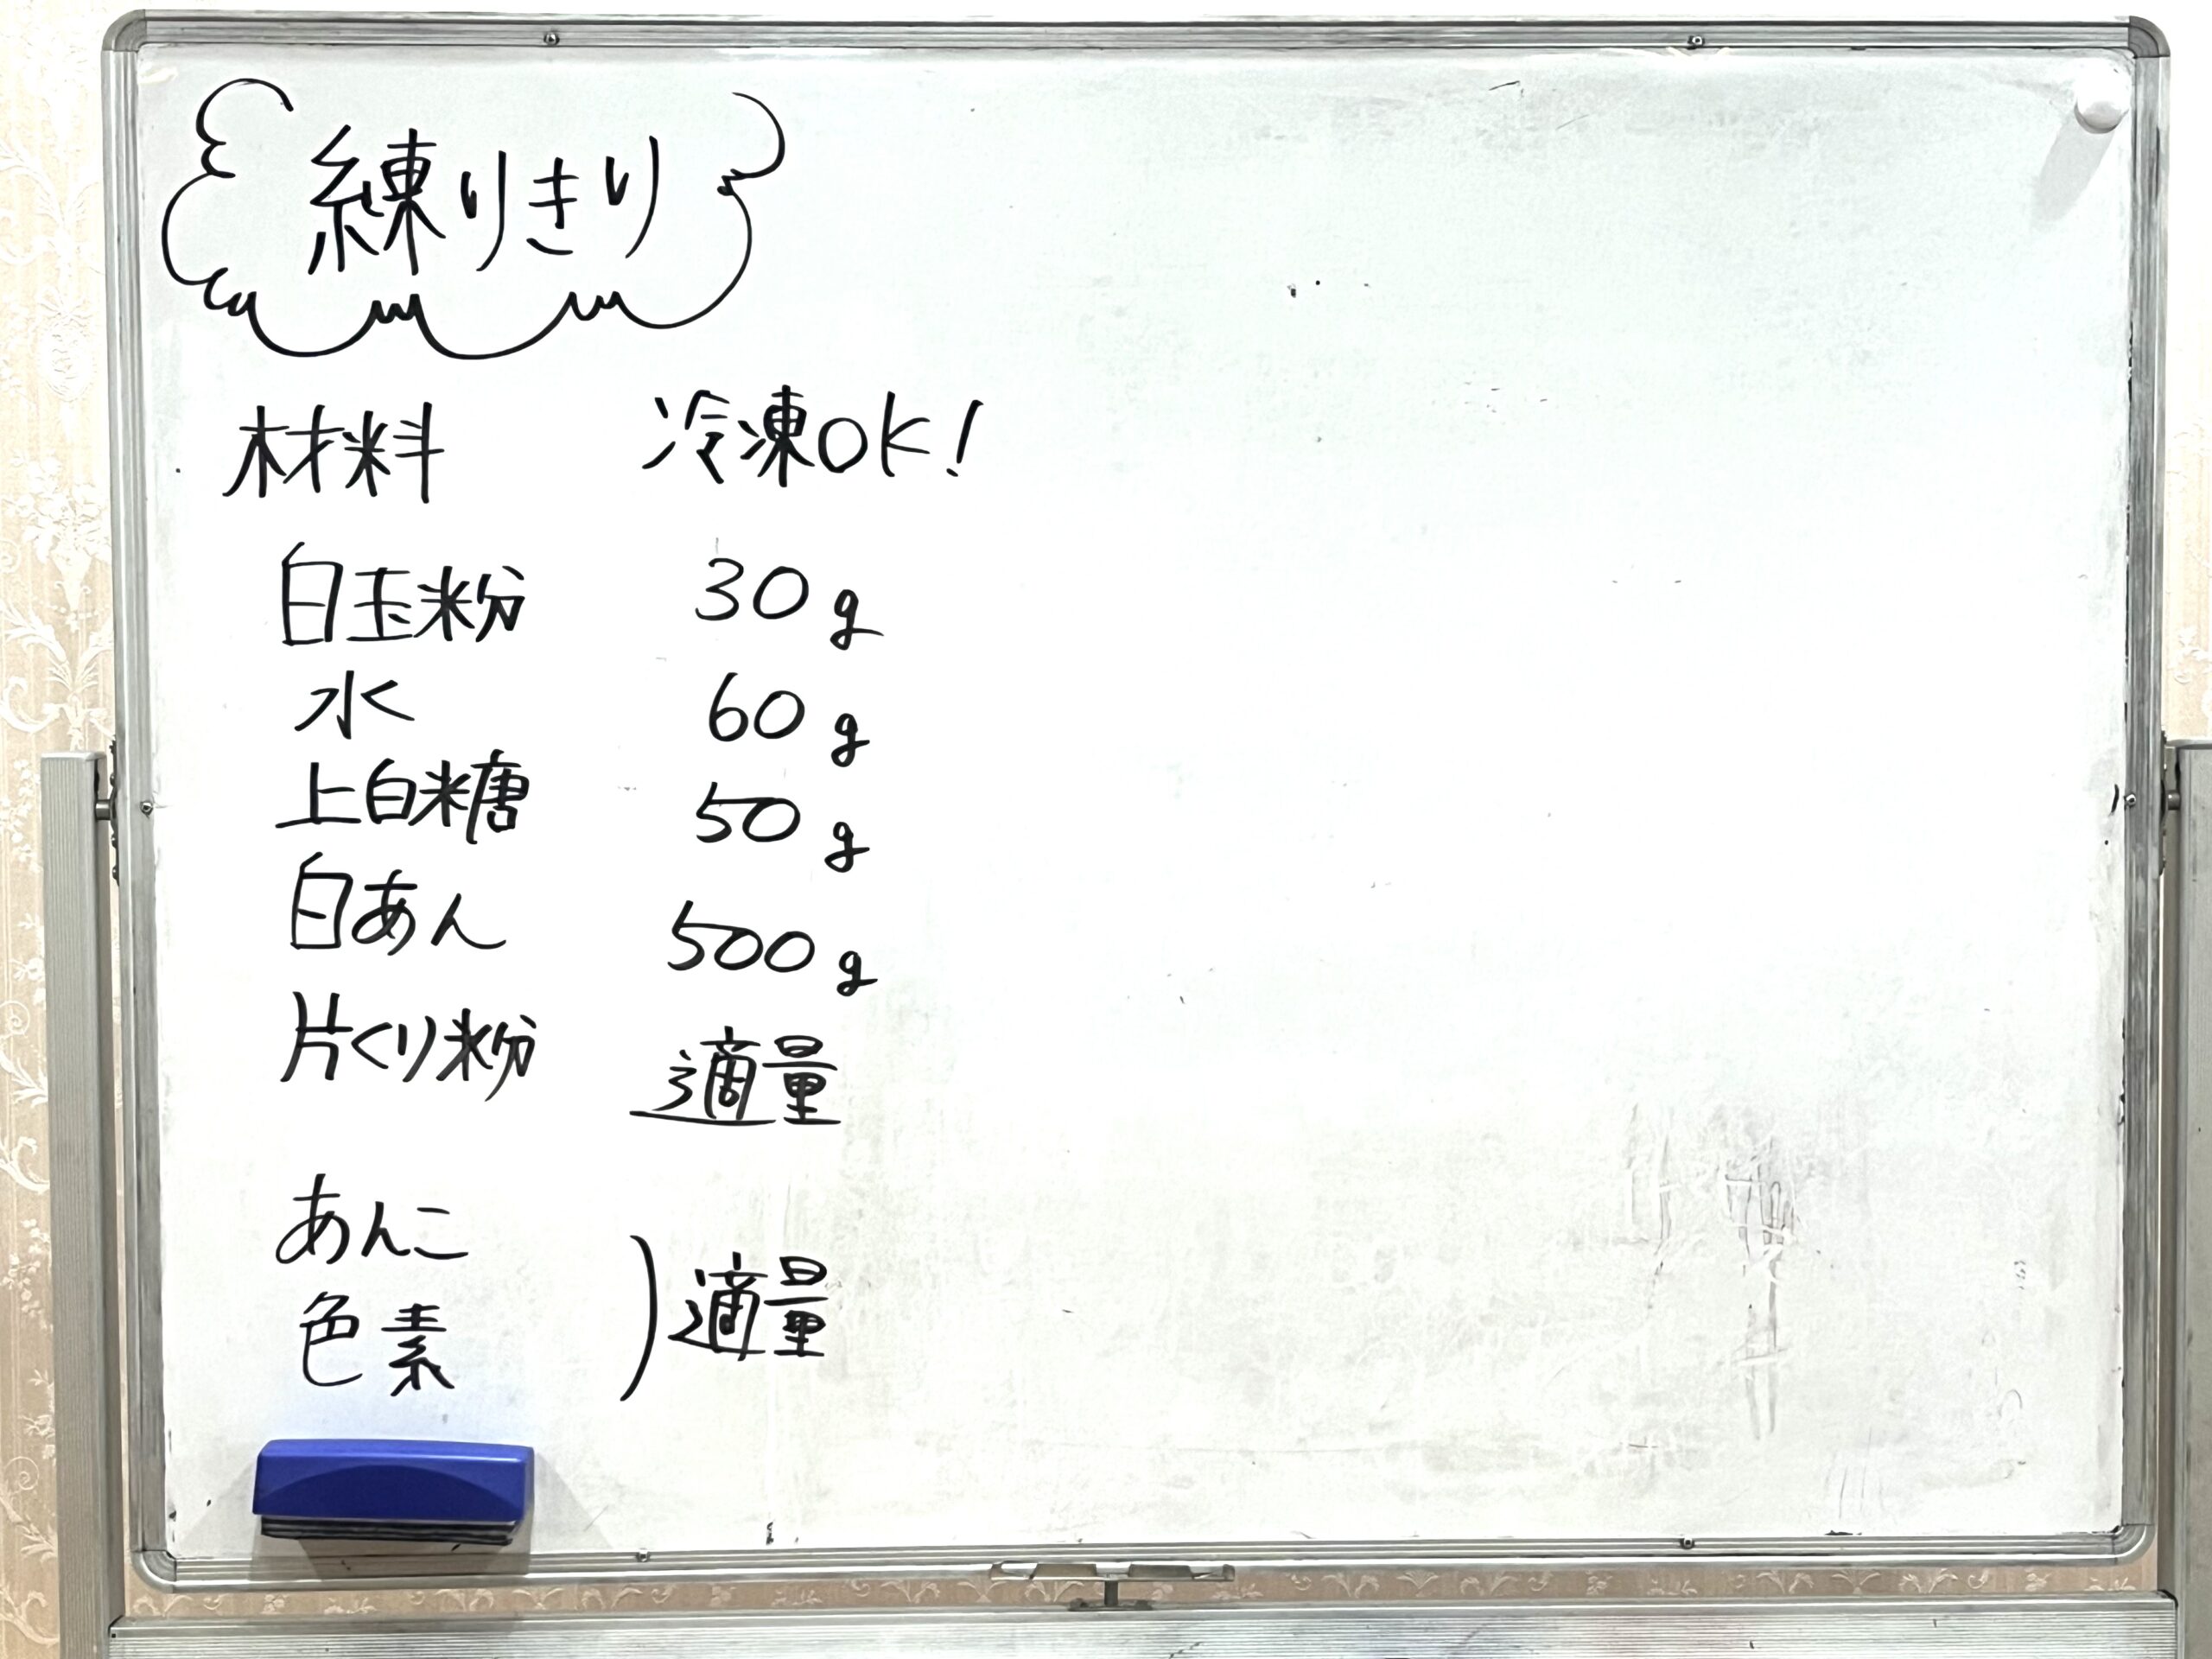 練りきり
材料 冷凍OK!
白玉粉 30g
水 60g
上白糖 50g
白あん 500g
片くり粉 適量
あんこ
色素 ) 適量